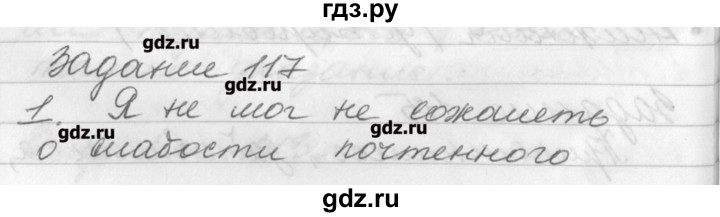 гдз.ру
gdz.ru
Задание 117
gdz.ru
1. Я не мог не сожалеть
gdz.ru gdz.ru
о слабости почтенного
gdz.ru